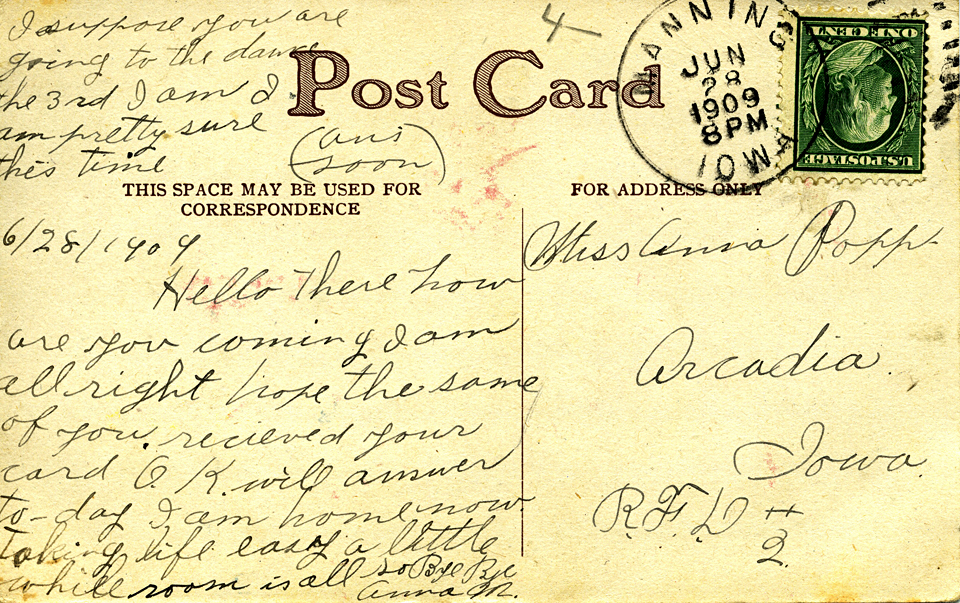 I suppose you are
going to the dance
the 3rd I am I
am pretty sure
this time
(ans
soon)
4
Post Card
MANNING
JUN
28
1909
8 PM
IOWA
ONE CENT
U.S. POSTAGE
THIS SPACE MAY BE USED FOR
CORRESPONDENCE
FOR ADDRESS ONLY
6/28/1909
Hello There how
are you coming I am
all right hope the same
of you. recieved your
card O.K. will answer
to-day I am home now.
taking life easy a little
while room is all so Bye Bye
Anna M.
Miss Anna Popp
Arcadia
Iowa
R.F.D #
2.